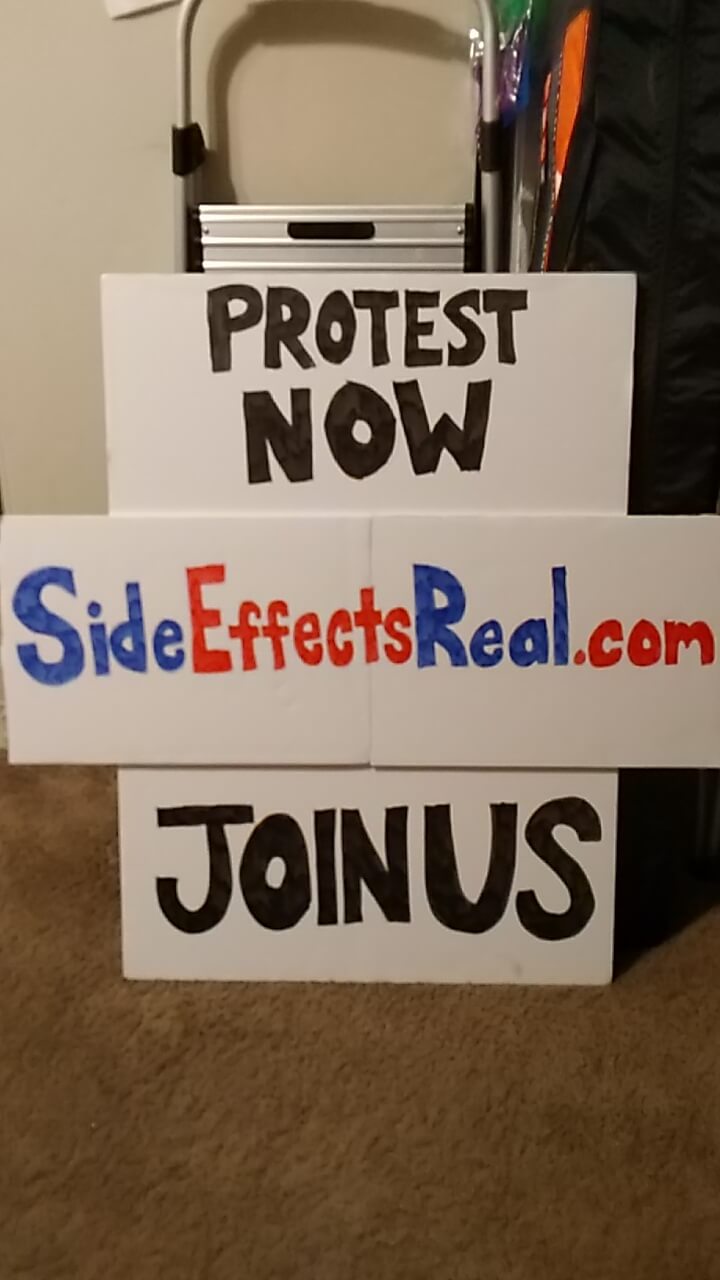 PROTEST
NOW
SideEffectsReal.com
JOIN US